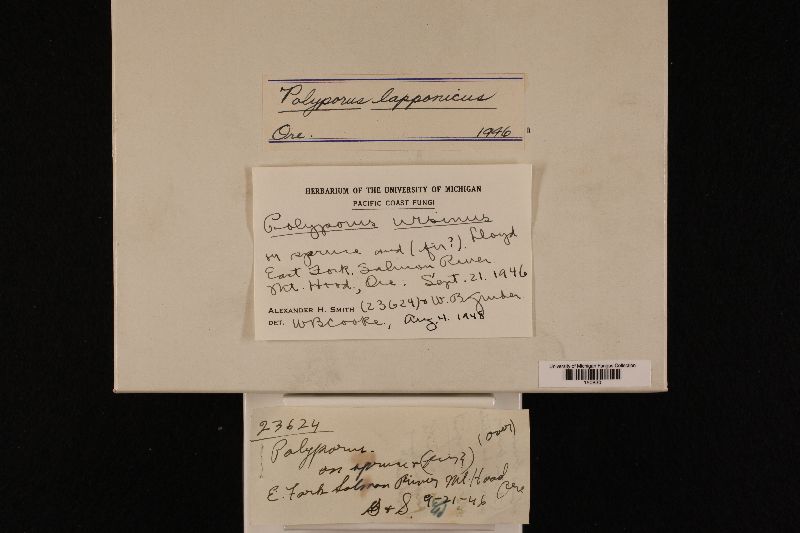 Polyporus lapponicus
Ore. 1946
HERBARIUM OF THE UNIVERSITY OF MICHIGAN
PACIFIC COAST FUNGI
Polyporus ursinus
on spruce and (fir?). Lloyd
East Fork, Salmon River
Mt. Hood, Ore. Sept. 21. 1946
ALEXANDER H. SMITH (23624) & W. B. Gruber
DET. WBCooke, Aug. 4. 1948
University of Michigan Fungus Collection
23624
(over)
Polyporus.
on spruce & (fir?)
E. Fork Salmon River Mt. Hood
Ore
G & S. 9-21-46